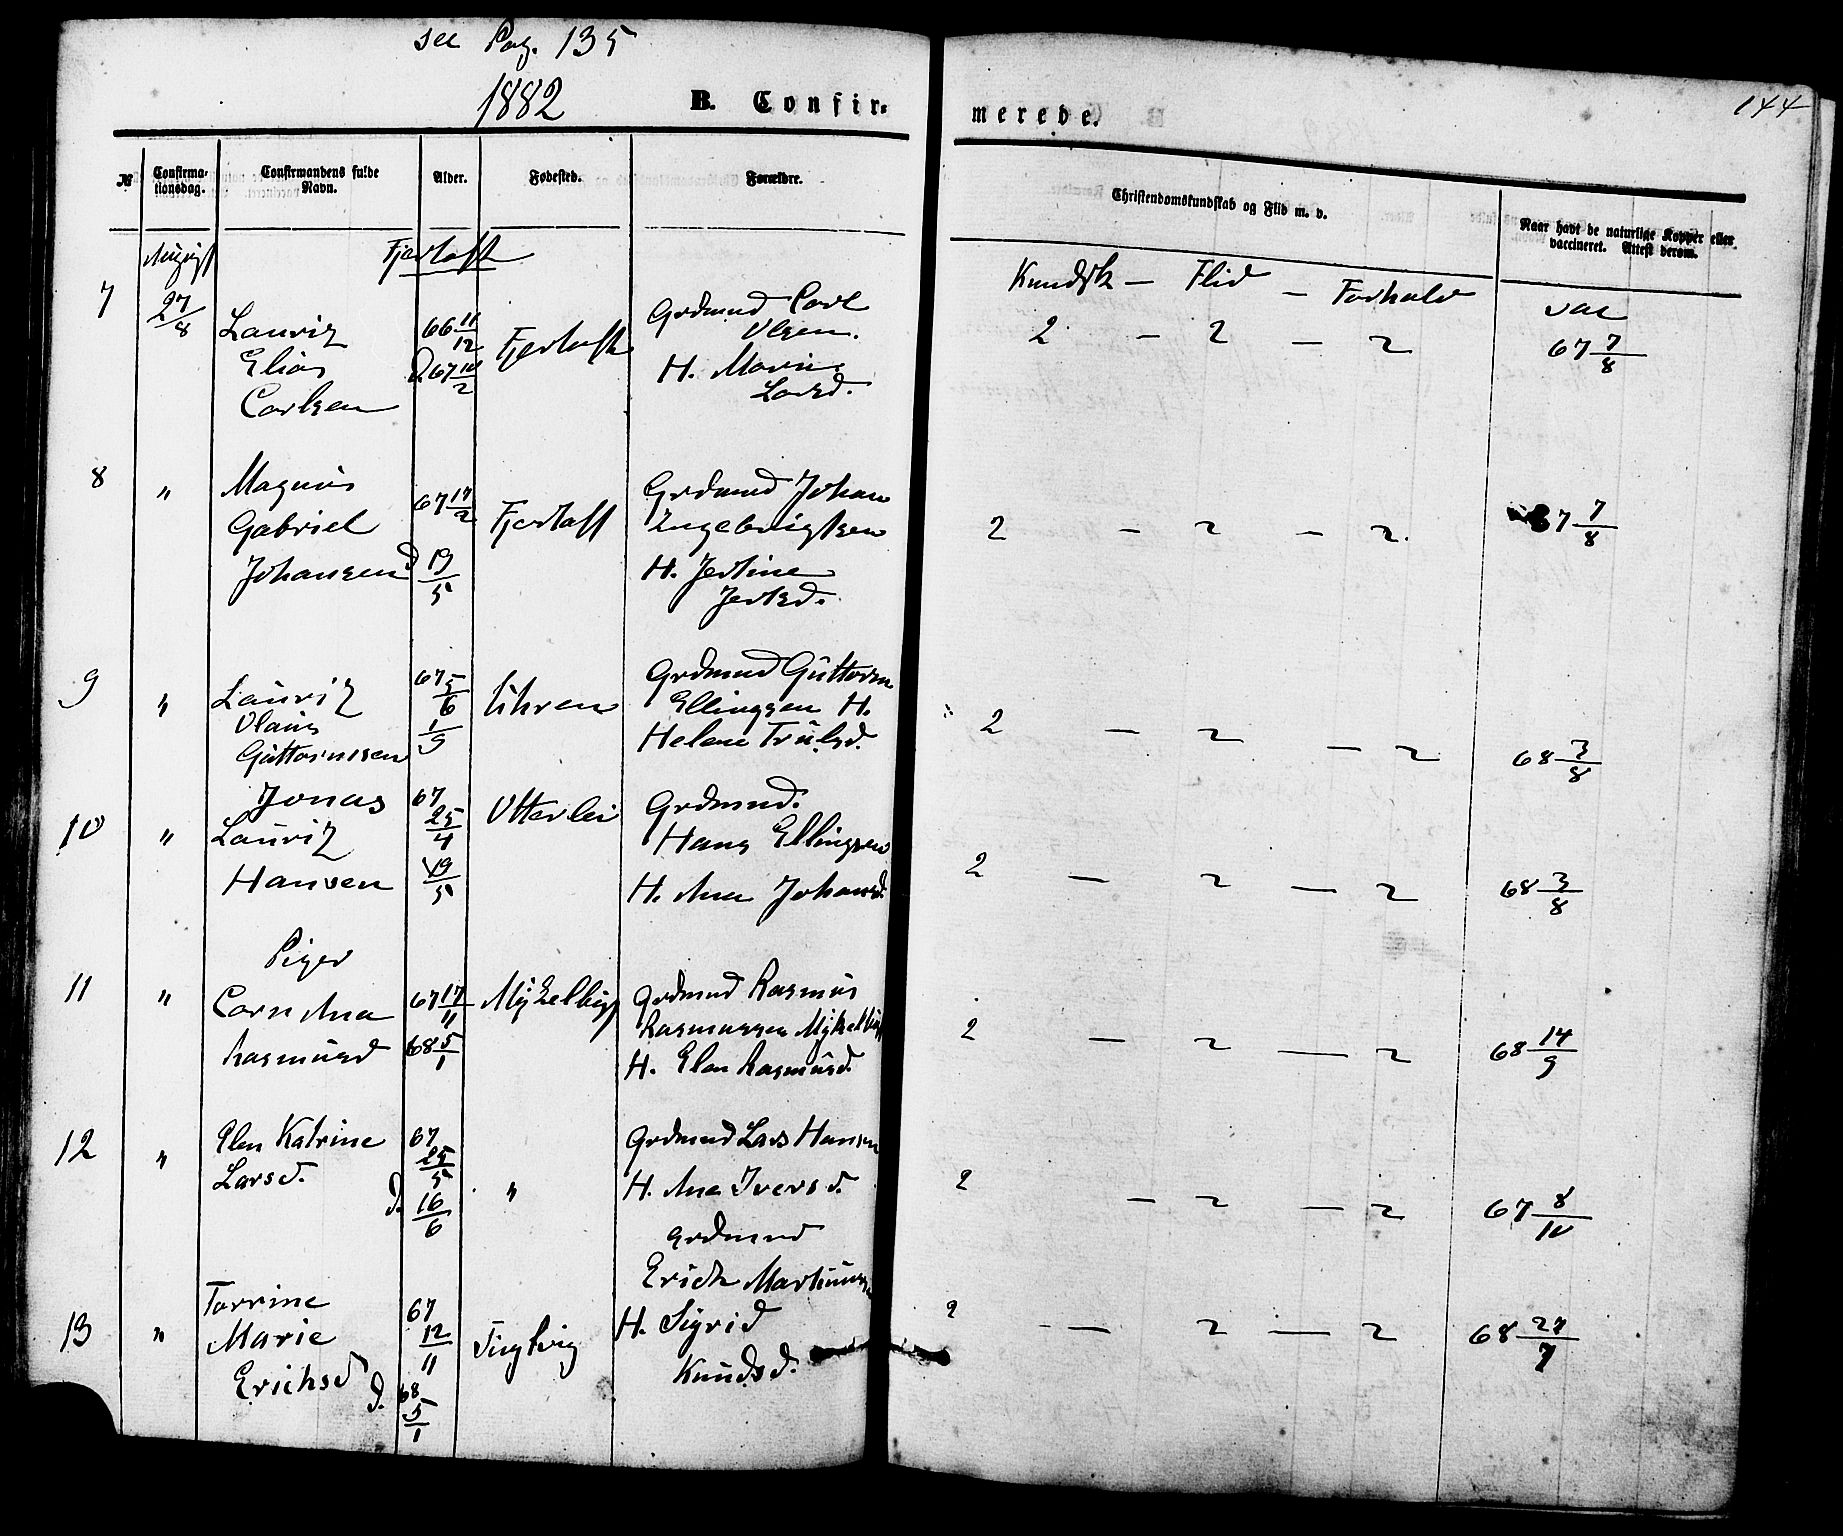 see Pag. 135
1882 B. Confir- merede. 144
№ Confirma-tionsdag. Confirmandens fulde Navn. Alder. Fødested. Forældre. Christendomskundskab og Flid m. v. Naar havt de naturlige Kopper eller vaccineret. Attest derom.
Fjortoft
Kundsk — Flid — Forhold vac
7 27/8 Lauriz 66 11/12 Fjortoft Grdmand Carl 2 — 2 — 2 67 7/8
Elias D 67 10/2 Olsen.
Carlsen H. Marie
Larsd.
8 " Magnus 67 17/2 Fjortoft Grdmand Johan 2 — 2 — 2. 67 7/8
Gabriel Engebrigtsen
Johansen d 19/5 H. Jertine
Jertsd.
9 " Lauriz 67 5/6 Uhren Grdmand Guttorm 2 — 2 — 2 68 3/8
Olaus 1/9 Ellingsen H.
Guttormsen Helene Trulsd.
Jonas 67 Otterlei Grdmand.
10 " Lauriz 25/4 Hans Ellingsen 2 — 2 — 2 68 3/8
Hansen 19/5 H. Ana Johansd.
Piger
11 " Corn Ana 67 17/11 Mÿkelbug Grdmand Rasmus 2 — 2 — 2 68 14/9
Rasmusd 68 5/1 Rasmussen Mÿkelbug
H. Elen Rasmusd.
12 " Elen Katrine 67 25/5 " Grdmand Lars Hansen 2 — 2 — 2 67 8/10
Larsd. d. 16/6 H. Ana Iversd.
Grdmand
Erich Martinusen
13 " Torrine 67 12/11 Tingvig H. Sigrid 2 — 2 — 2 68 27/7
Marie Knudsd.
Erichsd d. 68 5/1